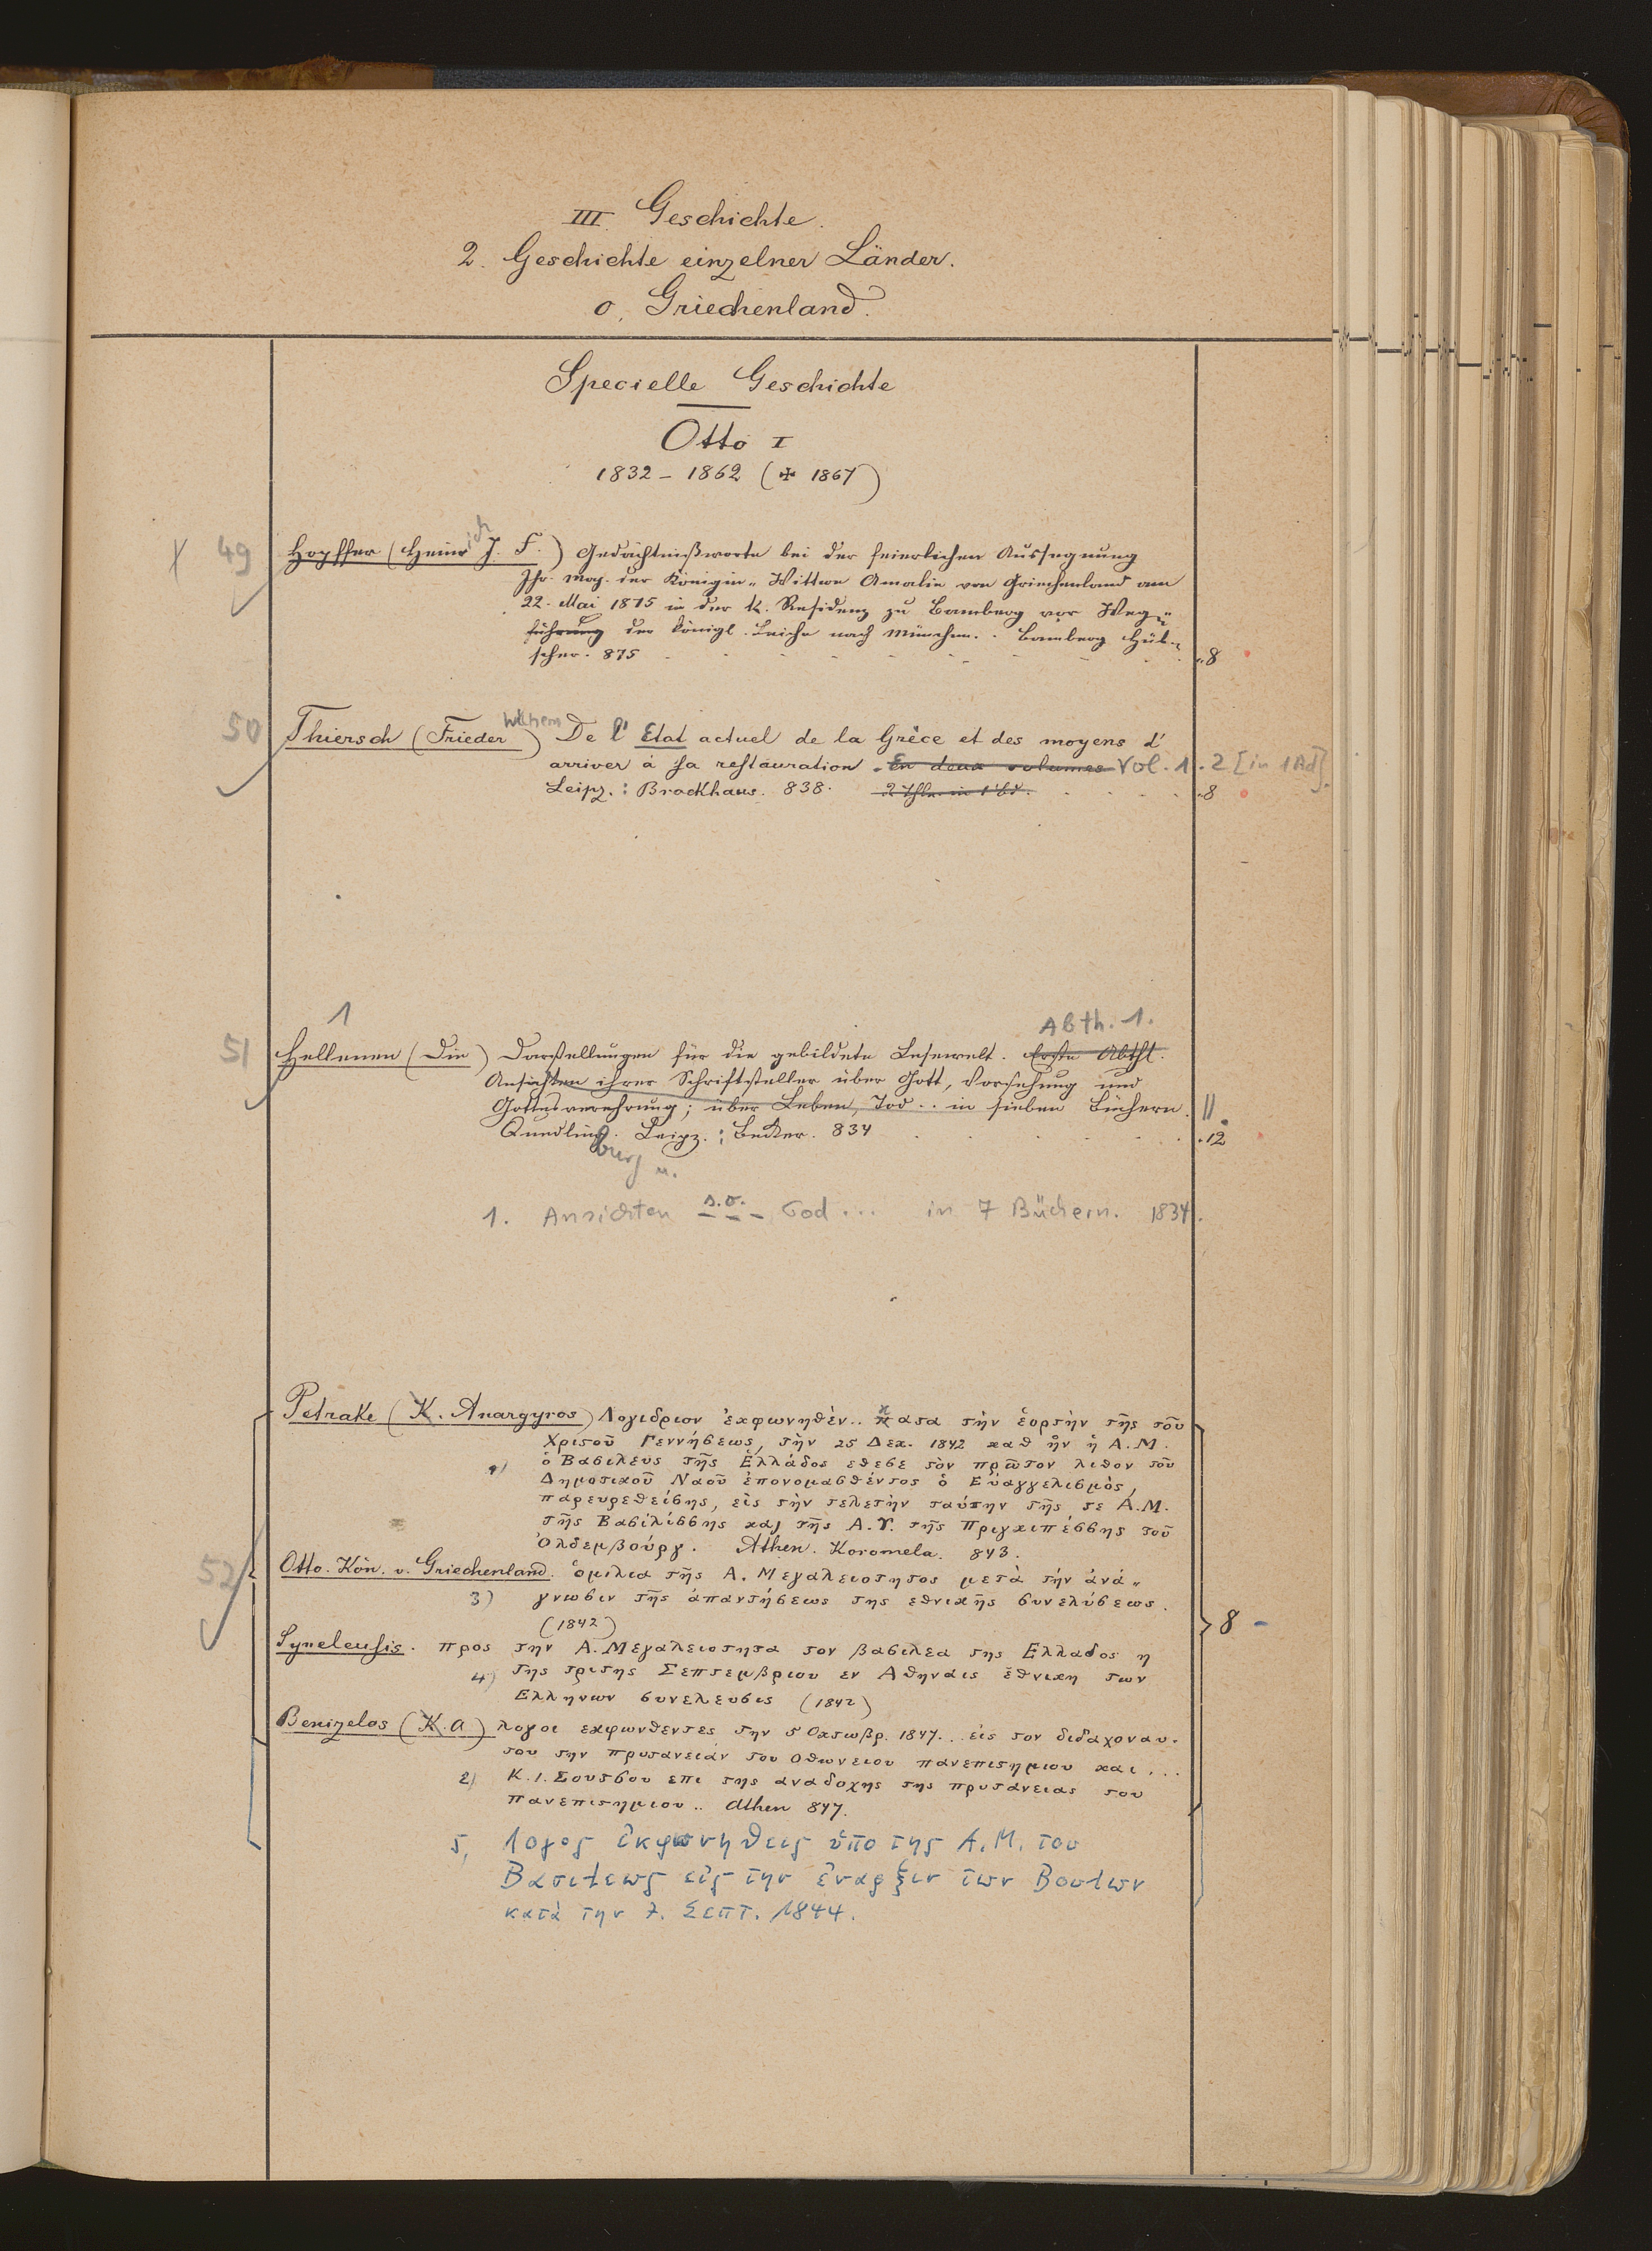 III. Geschichte.
2. Geschichte einzelner Länder.
o. Griechenland.
Specielle Geschichte
Otto I
1832 – 1862 (✠ 1867)
X 49 Hopffer (Heinrich J. F.) Gedächtnißworte bei der feierlichen Aussegnung
Ihr. Maj. der Königin-Wittwe Amalie von Griechenland am
22. Mai 1875 in der K. Residenz zu Bamberg vor Weg-
führung der königl. Leiche nach München. . Bamberg Hüb-
scher. 875 8
50 Thiersch (Frieder Wilhem) De l' Etat actuel de la Grèce et des moyens d'
arriver à sa restauration. En deux volumes Vol. 1. 2 [in 1 Bd].
Leipz. : Brockhaus. 838. 2 Thle. in 1 Bd. 8
1 Abth. 1.
51 Hellenen (Die) Darstellungen für die gebildete Lesewelt. Erste Abthl.
Ansichten ihrer Schriftsteller über Gott, Vorsehung und
Gottesverehrung; über Leben, Tod .. in sieben Büchern. ||
Quedlinburg u. Leipz. : Becker. 834 12
1. Ansichten s.o. – – – Tod ... in 7 Büchern. 1834.
Petrake (K. Anargyros) Λογιδριον ἐκφωνηθὲν .. κατα τὴν ἑορτὴν τῆς τοῦ
Χριστοῦ Γεννήσεως, τὴν 25 Δεκ. 1842 καθ ἣν ἡ Α. Μ.
1) ὁ Βασιλεὺς τῆς Ἑλλάδος εθεσε τὸν πρῶτον λιθον τοῦ
Δημοτικοῦ Ναοῦ ἐπονομασθέντος ὁ Εὐαγγελισμὸς,
παρευρεθείσης, εἰς τὴν τελετὴν ταύτην τῆς τε Α. Μ.
τῆς Βασιλίσσης καὶ τῆς Α. Υ. τῆς Πριγκιπέσσης τοῦ
Ὀλδεμβούργ. Athen. Koromela. 843.
52 Otto. Kön. v. Griechenland. ὁμιλια τῆς Α. Μεγαλειοτητος μετὰ τὴν ἀνά-
3) γνωσιν τῆς ἀπαντήσεως της εθνικῆς συνελύσεως.
(1842) 8 –
Syneleusis. προς την Α. Μεγαλειοτητα τον βασιλεα της Ελλαδος η
4) της τριτης Σεπτεμβριου εν Αθηναις ἐθνικη των
Ελληνων συνελευσις (1842)
Benizelos (K. A) λογοι εκφωνθεντες την 5 Οκτωβρ. 1847 ... εἰς τον διδαχοναυ-
του την πρυτανειάν του Οθωνειου πανεπιστημιου και ...
2) Κ. Ι. Σουτσου επι της αναδοχης της πρυτανειας του
πανεπιστημιου .. Athen 847.
5, Λογος ἐκφωνηθεις ὑπο της Α. Μ. του
Βασιλεως εἰς την ἐναρξιν των Βουλων
κατὰ την 7. Σεπτ. 1844.